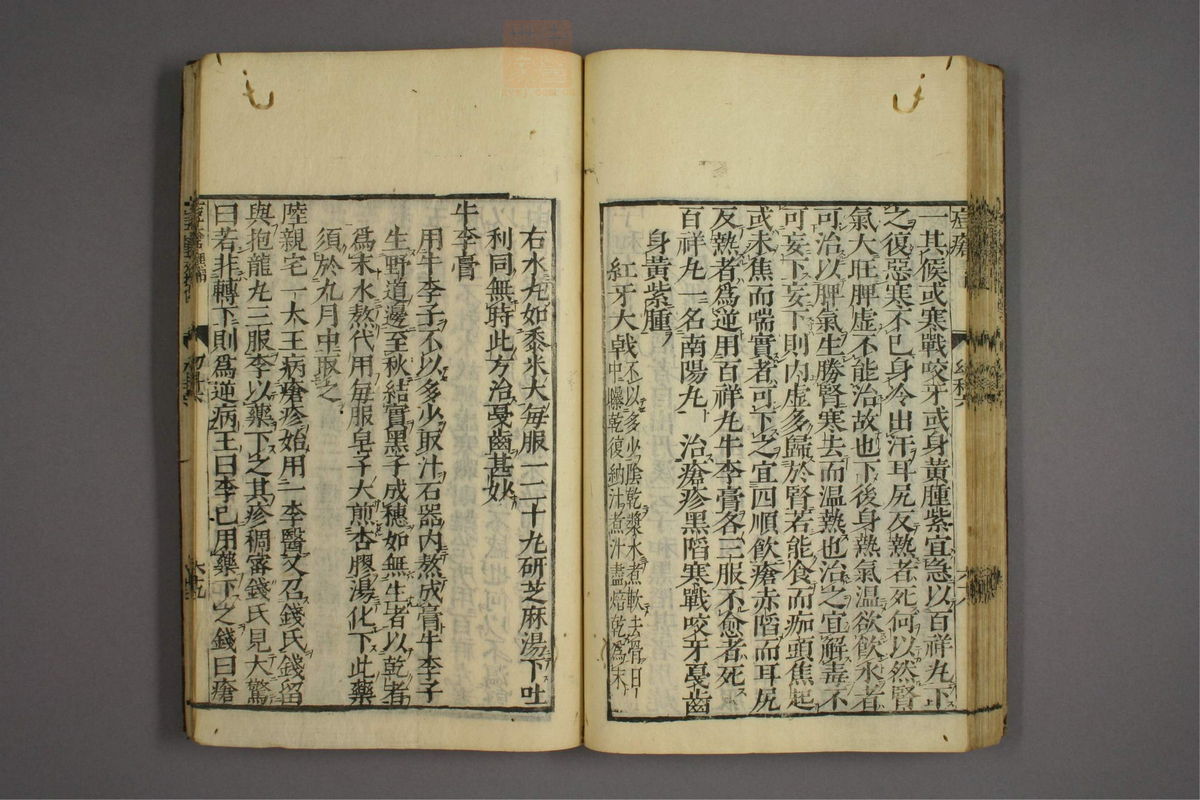 一其候或寒戰咬牙或身黄腫紫宜急以百祥丸下
之復惡寒不已身令出汗耳尻反熱者死何以然腎
氣大旺脾虚不能治故也下後身熱氣温欲飲水者
可治以脾氣生勝腎寒去而温熱也治之宜解毒不
可妄下妄下則内虚多歸於腎若能食而痂頭焦起
或未焦而喘實者可下之宜四順飲瘡赤䧟而耳尻
反熱者爲逆用百祥丸牛李膏各三服不愈者死
百祥丸一名南陽丸 治瘡疹黑䧟寒戰咬牙戞齒
身黄紫腫
紅牙大戟不以多少陰乾漿水煮軟去骨日
中曝乾復納汁煮汁盡焙乾爲末
右水丸如黍米大毎服一二十丸研芝麻湯下吐
利同無時此方治戞齒甚妙
牛李膏
用牛李子不以多少取汁石器内熬成膏牛李子
生野道邊至秋結實黑子成穗如無生者以乾者
爲末水熬代用毎服皂子大煎杏膠湯化下此藥
須於九月中取之
陸親宅一大王病瘡疹始用一李醫又召錢氏錢留
與抱龍丸三服李以藥下之其疹稠宻錢氏見大驚
曰若非轉下則爲逆病王曰李已用藥下之錢曰瘡